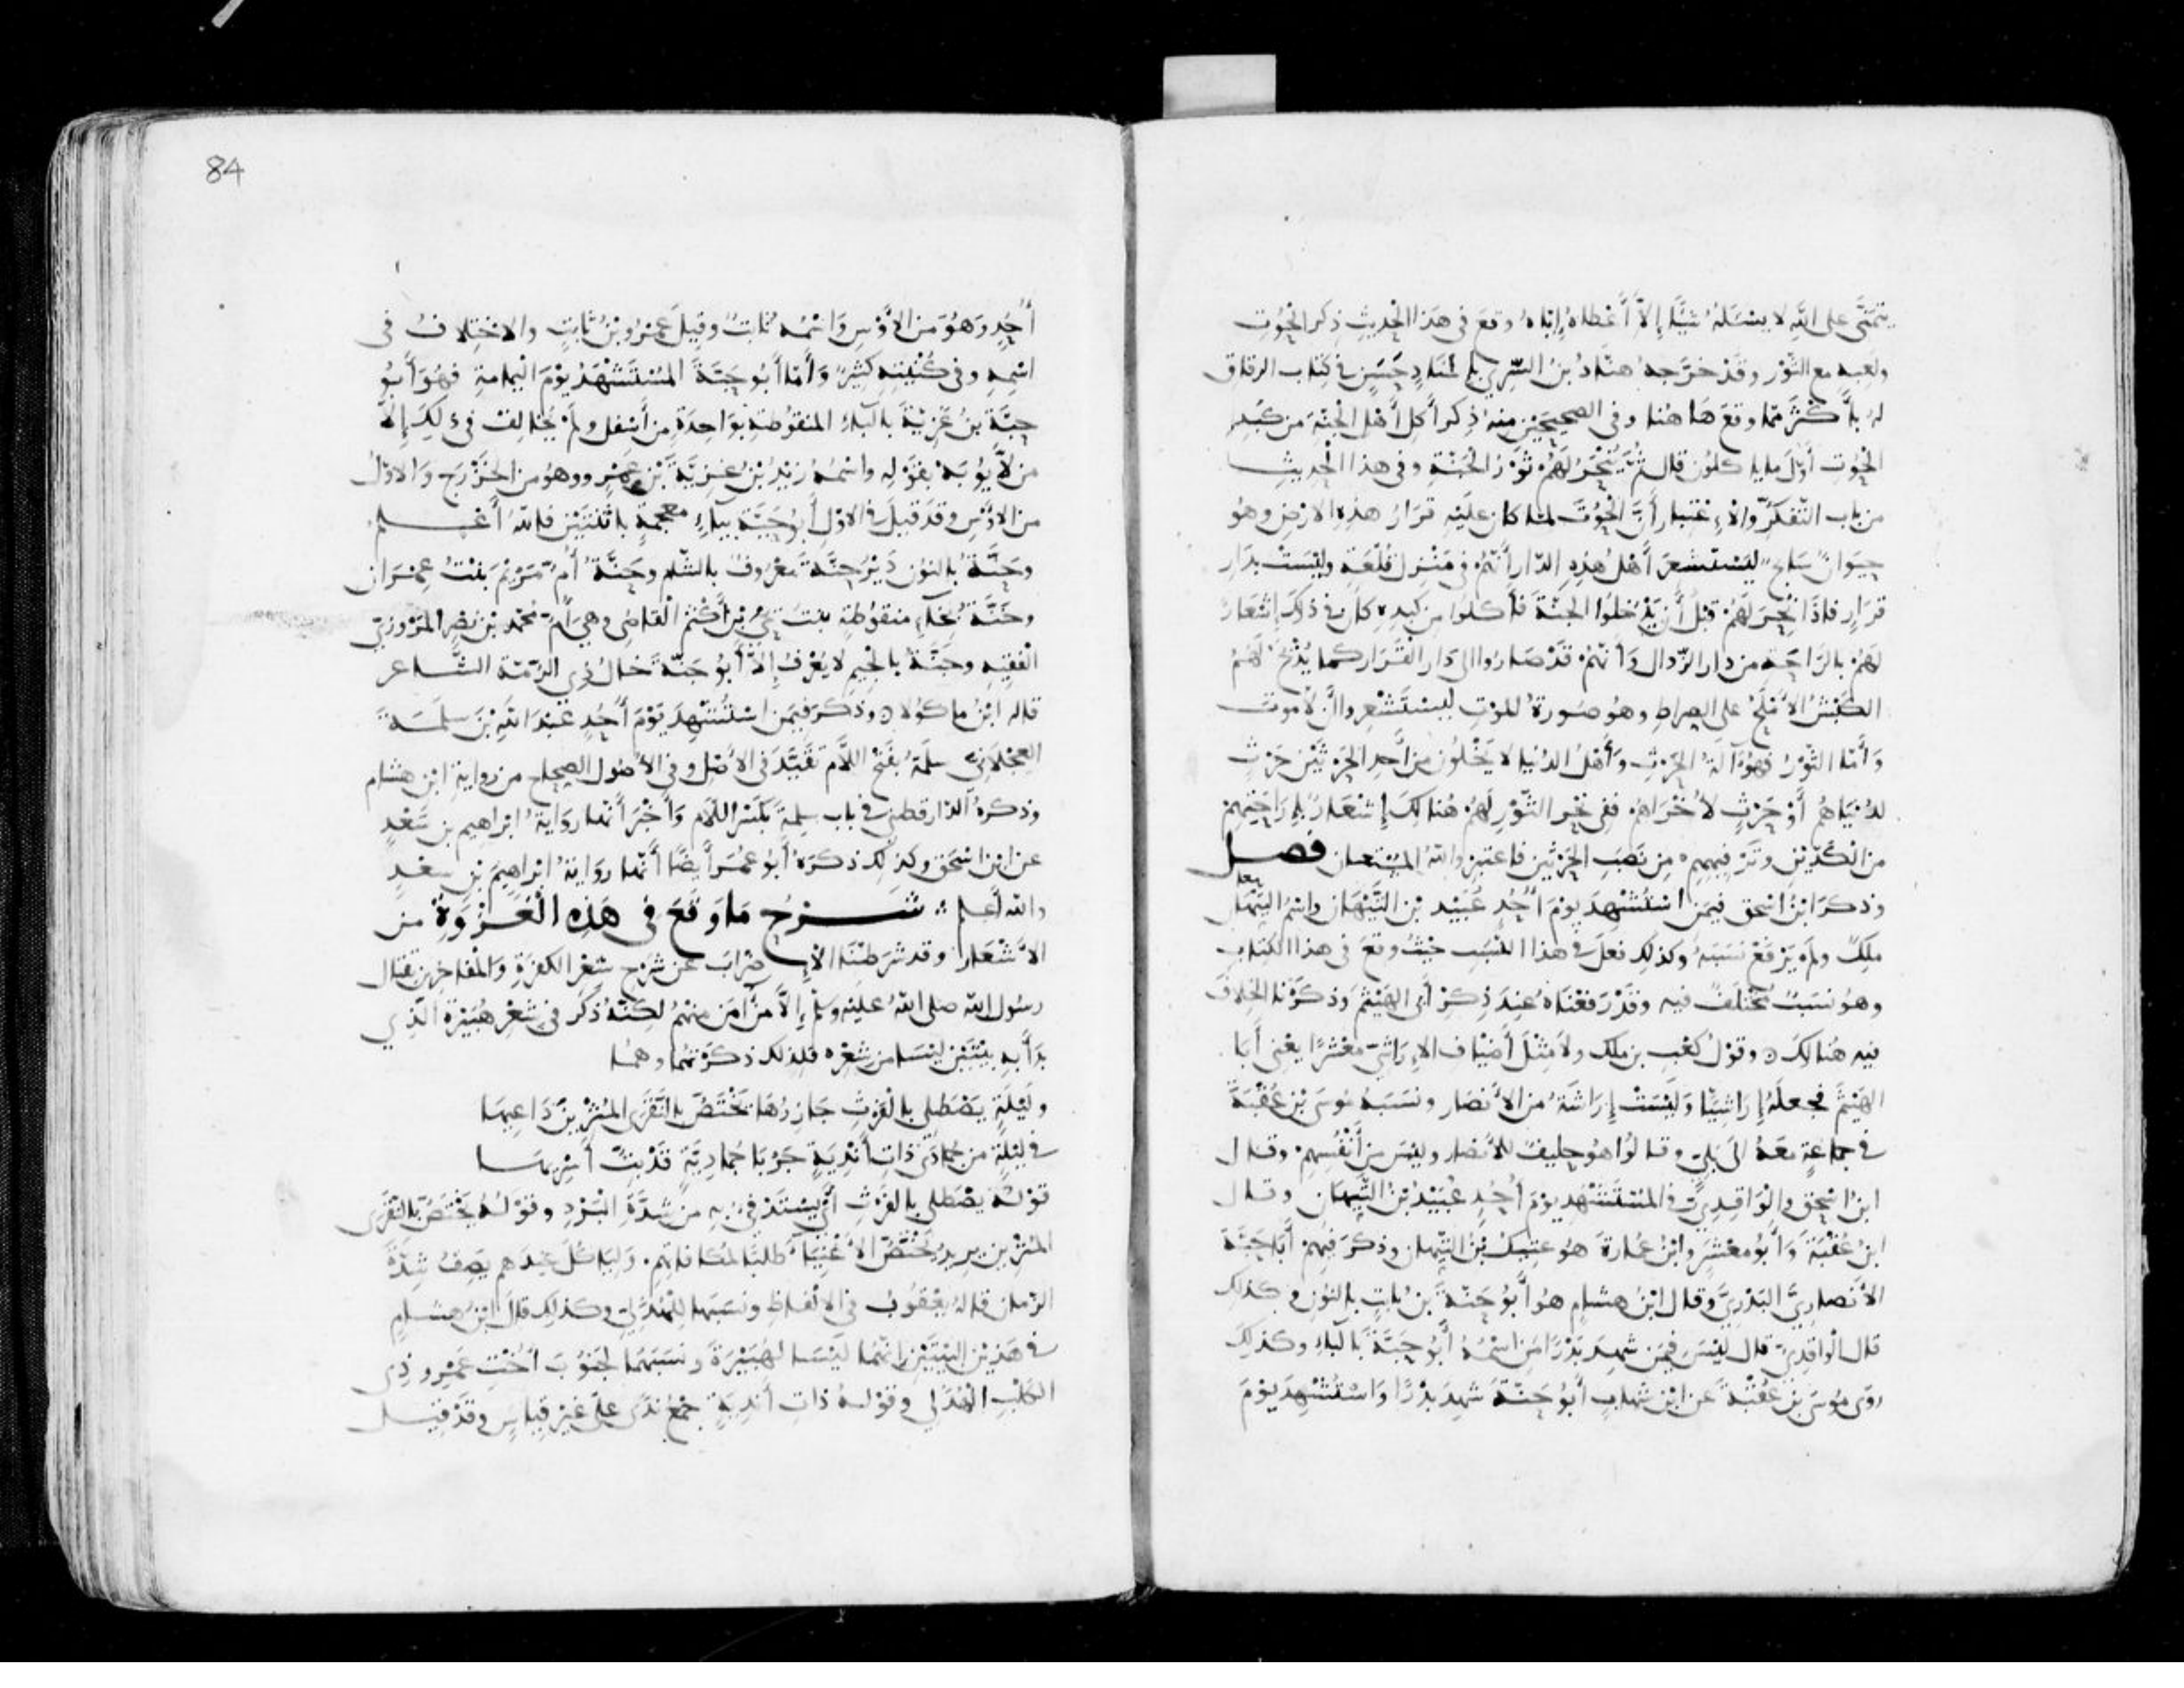 يتمنى على الله لا يسئله شيئا إلا أعطاه إياه وقع في هذا الحديث ذكر الحوت
ولعبه مع الثور وقد خرجه هناد بن السري بإسناد حسن في كتاب الرقاق
له بأكثر مما وقع هاهنا وفي الصحيحين منه ذكر أكل أهل الجنة من كبد
الحوت أول ما ياكلون قال ثم ينحر لهم ثور الجنة وفي هذا الحديث
من باب التفكر والاعتبار أن الحوت لما كان عليه قرار هذه الارض وهو
حيوان سابح ليستشعر أهل هذه الدار أنهم في منزل قلعة وليست بدار
قرار فاذا نحر لهم قبل أن يدخلوا الجنة فأكلوا من كبده كان في ذلك إشعار
لهم بالراحة من دار الزوال وأنهم قد صاروا الى دار القرار كما يذبح لهم
الكبش الأملح على الصراط وهو صورة الموت ليستشعروا أن لا موت
وأما الثور فهو آلة الحرث وأهل الدنيا لا يخلون من أحد الحرثين حرث
لدنياهم أو حرث لأخراهم ففي نحر الثور لهم هنالك إشعار بإراحتهم
من الكدين وترفيههم من نصب الحرثين فاعتبر والله المستعان فصل
وذكر ابن اسحق فيمن استشهد يوم أحد عبيد بن التيهان واسم التيهان
ملك ولم يرفع نسبه وكذلك فعل في هذا النسب حيث وقع في هذا الكتاب
وهو نسب مختلف فيه وقد رفعناه عند ذكر أبي الهيثم وذكرنا الخلاف
فيه هنالك ه وقول كعب بن ملك ولا مثل أضياف الاراشي معشرا يعني أبا
الهيثم فجعله إراشيا وليست إراشة من الأنصار ونسبه موسى بن عقبة
في جماعة معه الى بلي وقالوا هو حليف للأنصار وليس من أنفسهم وقال
ابن اسحق والواقدي في المستشهد يوم أحد عبيد بن التيهان وقال
ابن عقبة وأبو معشر وابن عمارة هو عتيك بن التيهان وذكر فيهم أبا حبة
الأنصاري البدري وقال ابن هشام هو أبو حنة بن ثابت بالنون وكذلك
قال الواقدي قال ليس فيمن شهد بدرا من اسمه أبو حبة بالباء وكذلك
روى موسى بن عقبة عن ابن شهاب أبو حنة شهد بدرا واستشهد يوم
84
أحد وهو من الأوس واسمه ثابت وقيل عمرو بن ثابت والاختلاف في
اسمه وفي كنيته كثير وأما أبو حبة المستشهد يوم اليمامة فهو أبو
حبة بن غزية بالباء المنقوطة بواحدة من أسفل ولم يخالف في ذلك إلا
من لا يؤبه بقوله واسمه زيد بن غزية بن عمرو وهو من الخزرج والاول
من الاوس وقد قيل في الاول أبو حية بياء معجمة باثنتين فالله أعلم
وحنة بالنون دير حنة معروف بالشام وحنة أم مريم بنت عمران
وخنة بخاء منقوطة بنت يحيى بن أكثم القاضي وهي أم محمد بن نصر المروزي
الفقيه وجنة بالجيم لا يعرف إلا أبو جنة خال ذي الرمة الشاعر
قاله ابن ماكولا ه وذكر فيمن استشهد يوم أحد عبد الله بن سلمة
العجلاني سلمة بفتح اللام تقيد في الأصل وفي الأصول الصحاح من رواية ابن هشام
وذكره الدارقطني في باب سلمة بكسر اللام وأخبر أنها رواية ابراهيم بن سعد
عن ابن اسحق وكذلك ذكره أبو عمر أيضا أنها رواية ابراهيم بن سعد
والله أعلم شرح ما وقع في هذه الغزوة من
الأشعار وقد شرطنا الإضراب عن شرح شعر الكفرة والمفاخرين بقتال
رسول الله صلى الله عليه وسلم إلا من آمن منهم لكنه ذكر في شعر هبيرة الذي
بدأ به بيتين ليسا من شعره فلذلك ذكرتهما وهما
وليلة يصطلى بالفرث جازرها يختص بالنقرى المثرين داعيها
في ليلة من جمادى ذات أندية جربا جمادية قد بت أسريها
قوله يصطلى بالفرث أي يستدفيء به من شدة البرد وقوله يختص بالنقرى
المثرين يريد يختص الأغنياء طلبا لمكافاتهم وليأكل عندهم يصف شدة
الزمان قاله يعقوب في الالفاظ ونسبها للهذلي وكذلك قال ابن هشام
في هذين البيتين إنهما ليسا لهبيرة ونسبهما لجنوب أخت عمرو ذي
الكلب الهذلي وقوله ذات أندية جمع ندى على غير قياس وقد قيل